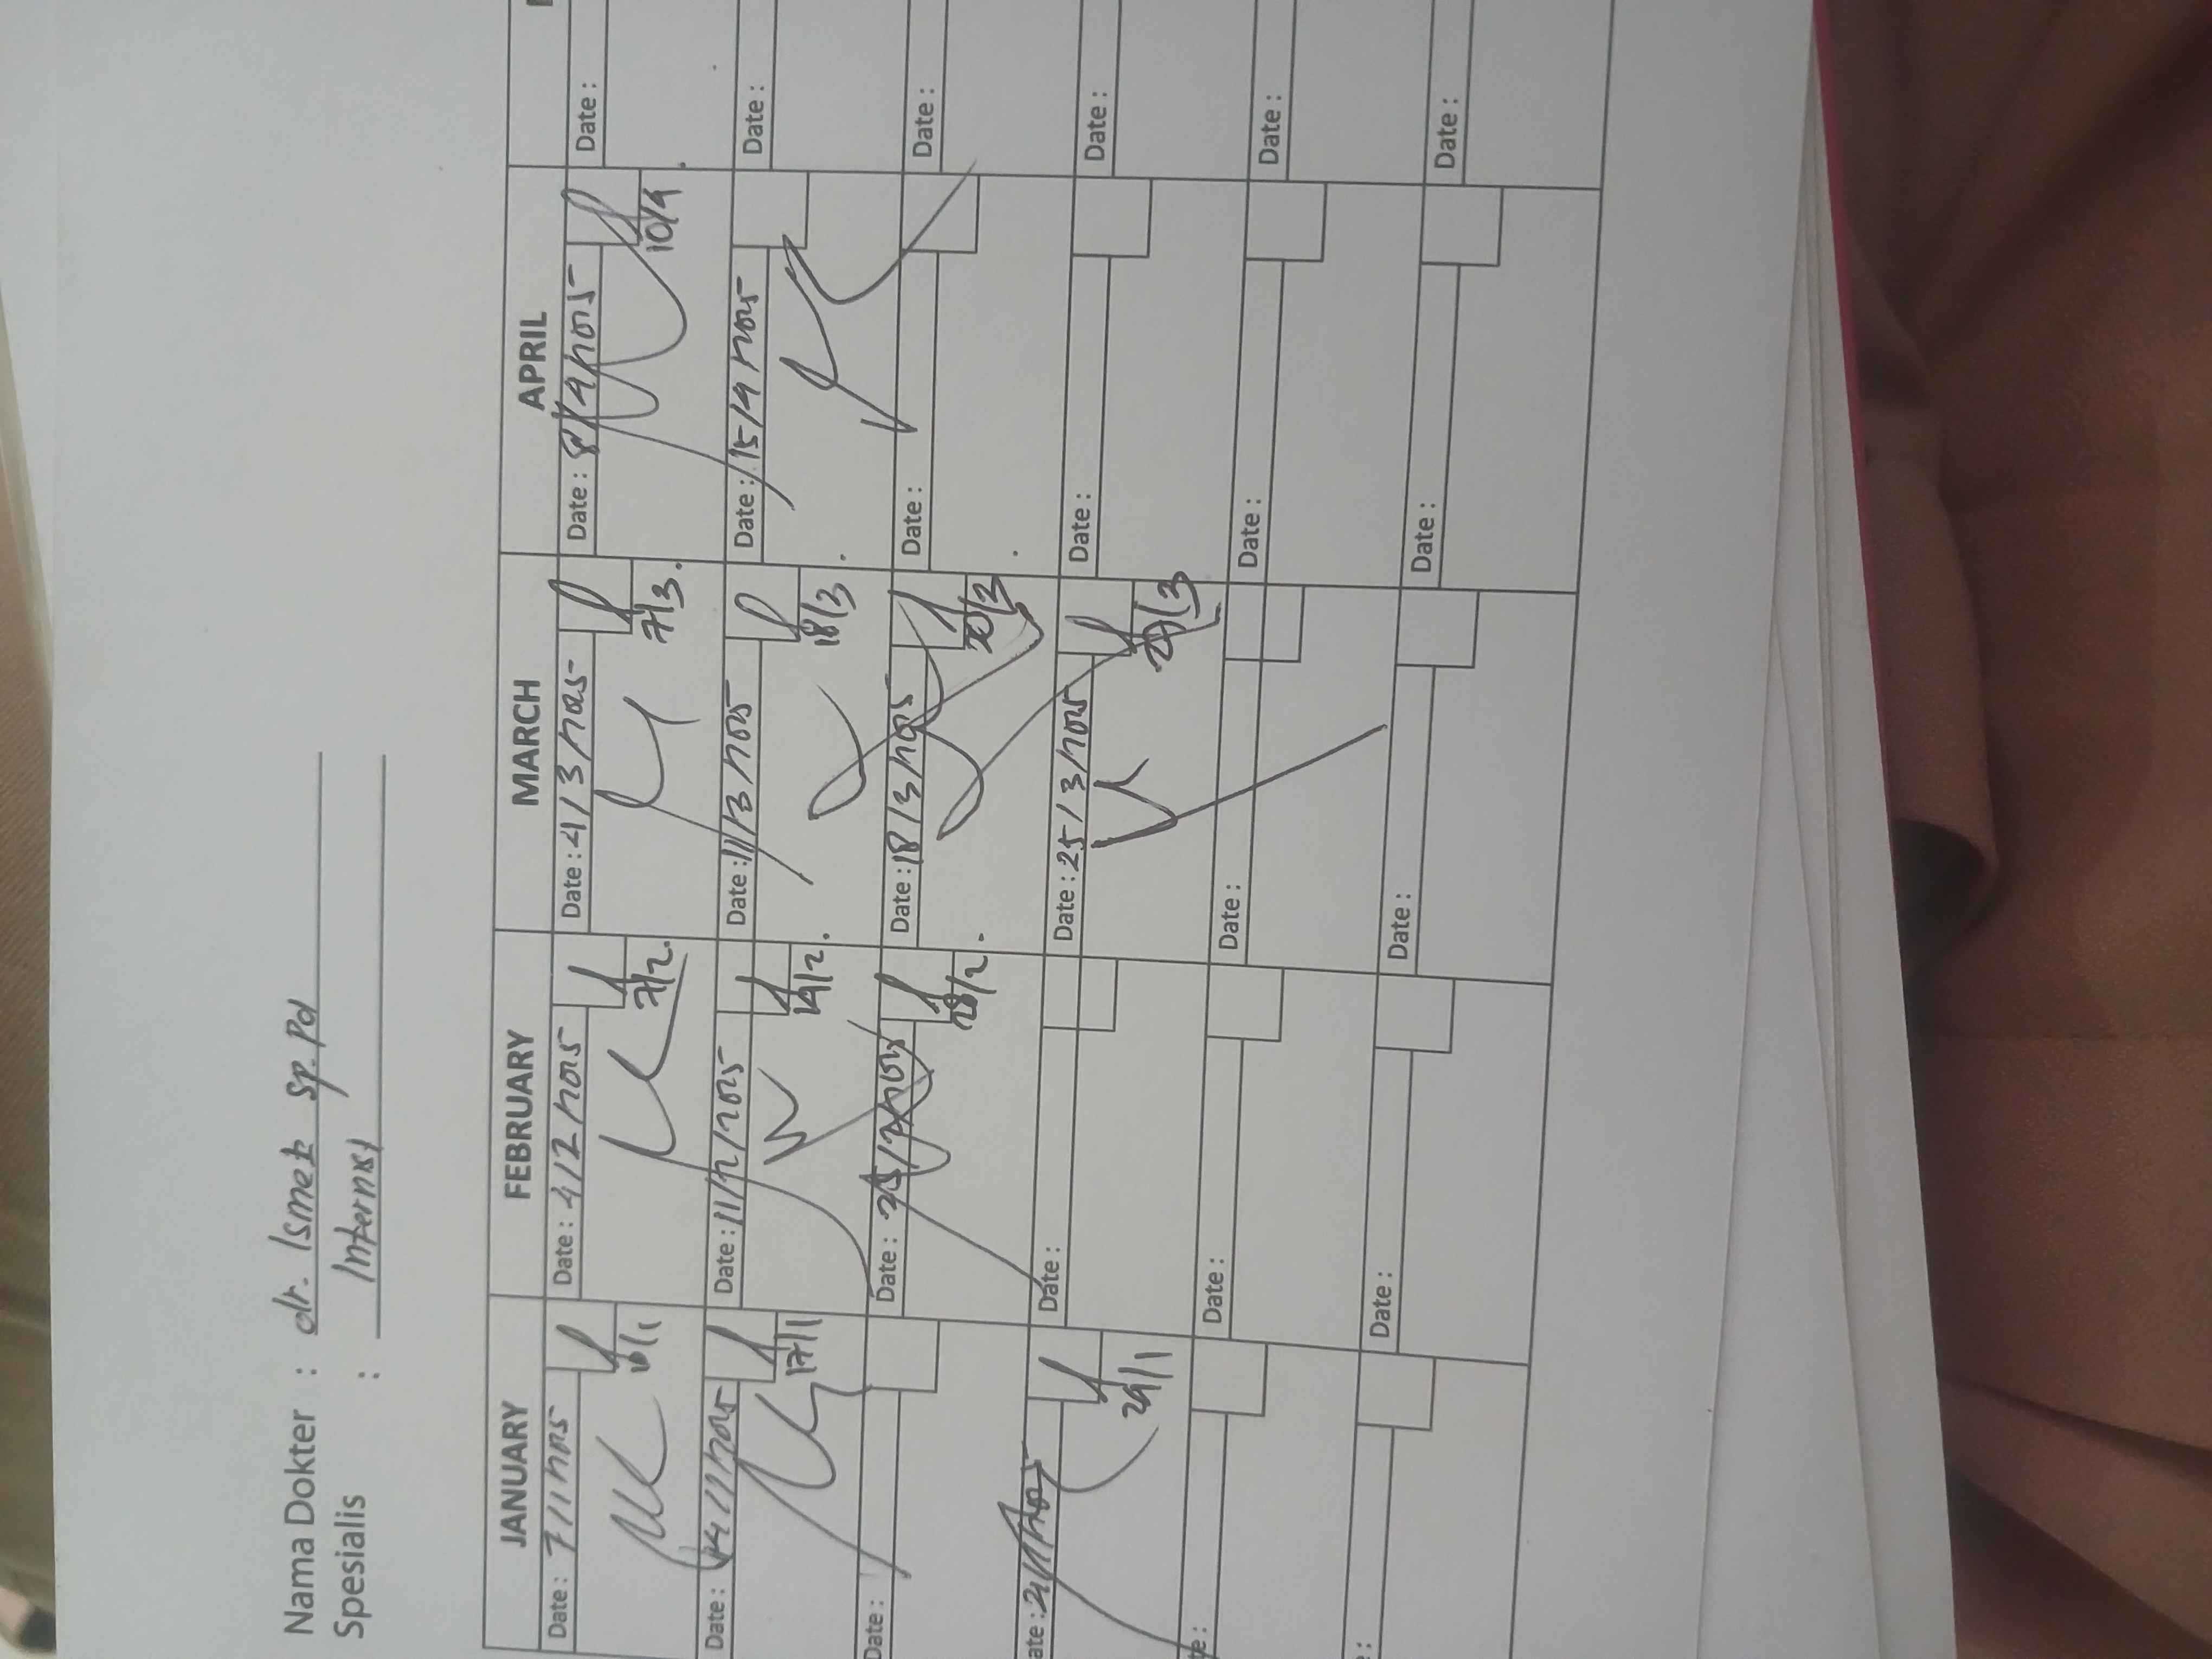 Nama Dokter : dr. Ismet Sp.Pd
Spesialis : Internist
JANUARY FEBRUARY MARCH APRIL
Date : 7/1/2025 Date : 4/2/2025 Date : 4/3/2025 Date : 8/4/2025 Date :
10/1 7/2 7/3 10/4
Date : 14/1/2025 Date : 11/2/2025 Date : 11/3/2025 Date : 15/4/2025 Date :
17/1 14/2 18/3
Date : Date : 25/2/2025 Date : 18/3/2025 Date : Date :
28/2 20/3
ate : 21/1/2025 Date : Date : 25/3/2025 Date : Date :
24/1 27/3
te : Date : Date : Date : Date :
: Date : Date : Date : Date :